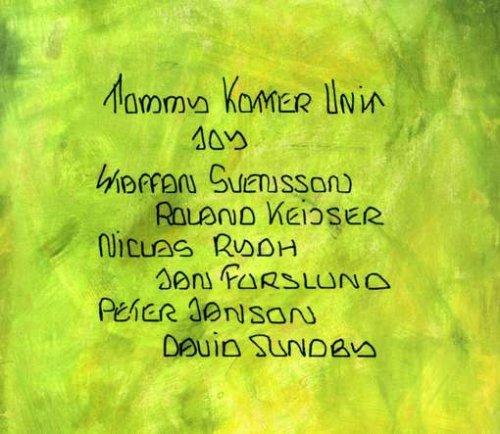 Tommy Komer Unit
Joy
Staffan Svensson
Roland Keijser
Niclas Rydh
Jan Forslund
Peter Janson
David Sundby